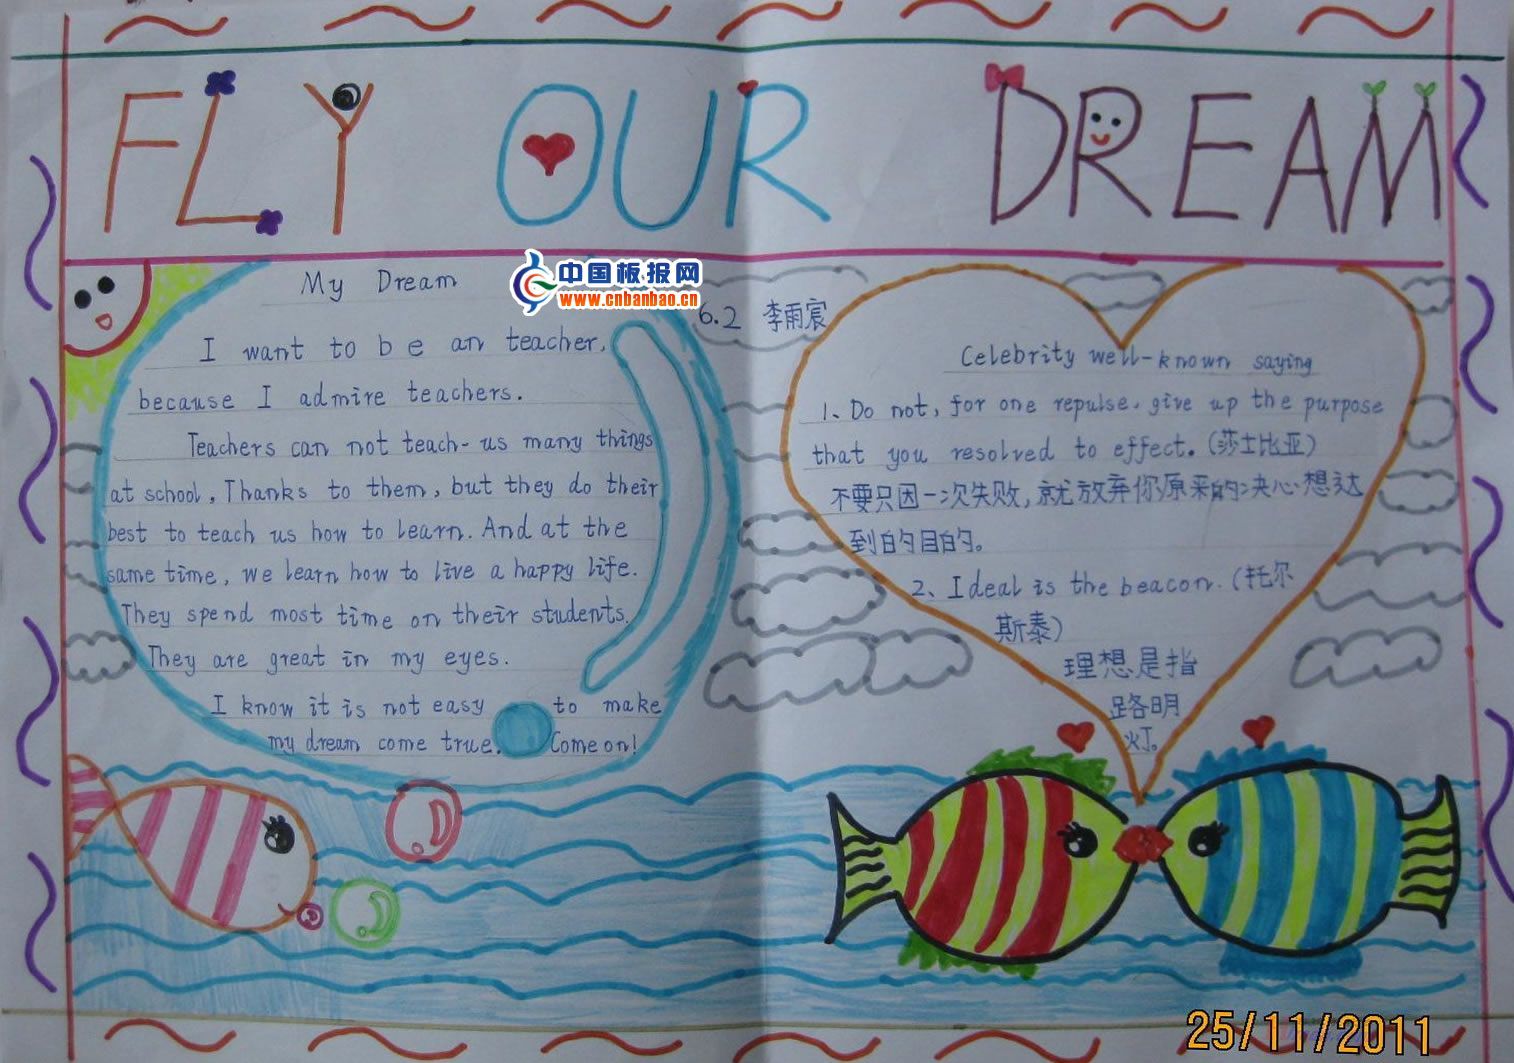 FLY OUR DREAM
中国板报网
www.cnbanbao.cn
My Dream
I want to be an teacher,
because I admire teachers.
Teachers can not teach-us many things
at school, Thanks to them, but they do their
best to teach us how to learn. And at the
same time, we learn how to live a happy life.
They spend most time on their students.
They are great in my eyes.
I know it is not easy to make
my dream come true. Come on!
6.2 李雨宸
Celebrity well-known saying
1、Do not, for one repulse, give up the purpose
that you resolved to effect. (莎士比亚)
不要只因一次失败,就放弃你原来的决心想达
到的目的。
2、Ideal is the beacon. (托尔
斯泰)
理想是指
路明
灯。
25/11/2011